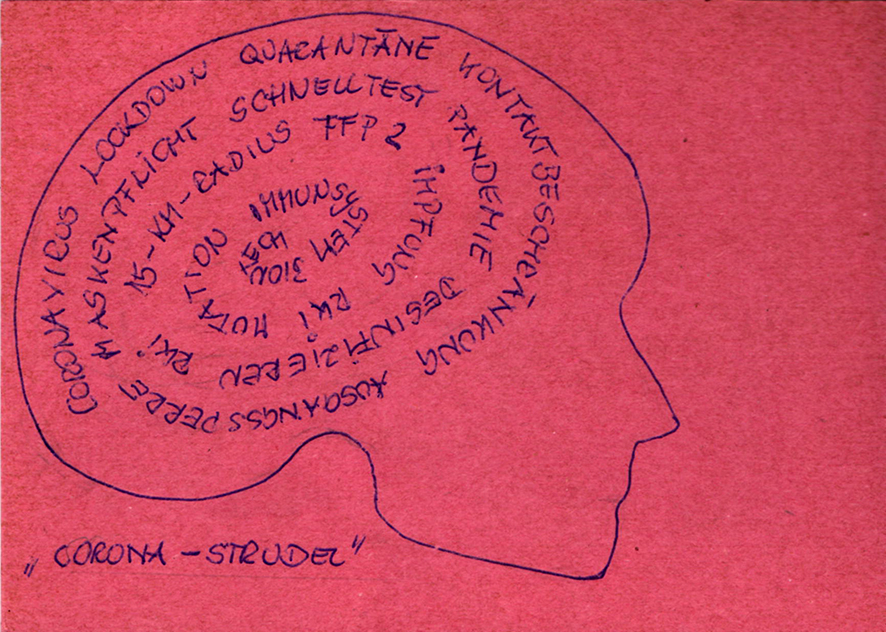 CORONAVIRUS LOCKDOWN QUARANTÄNE KONTAKTBESCHRÄNKUNG AUSGANGSSPERRE
MASKENPFLICHT SCHNELLTEST PANDEMIE DESINFIZIEREN RKI
15-KM-RADIUS FFP2 IMPFUNG RKI
MUTATION IMMUNSYSTEM BIONTECH
„CORONA-STRUDEL"